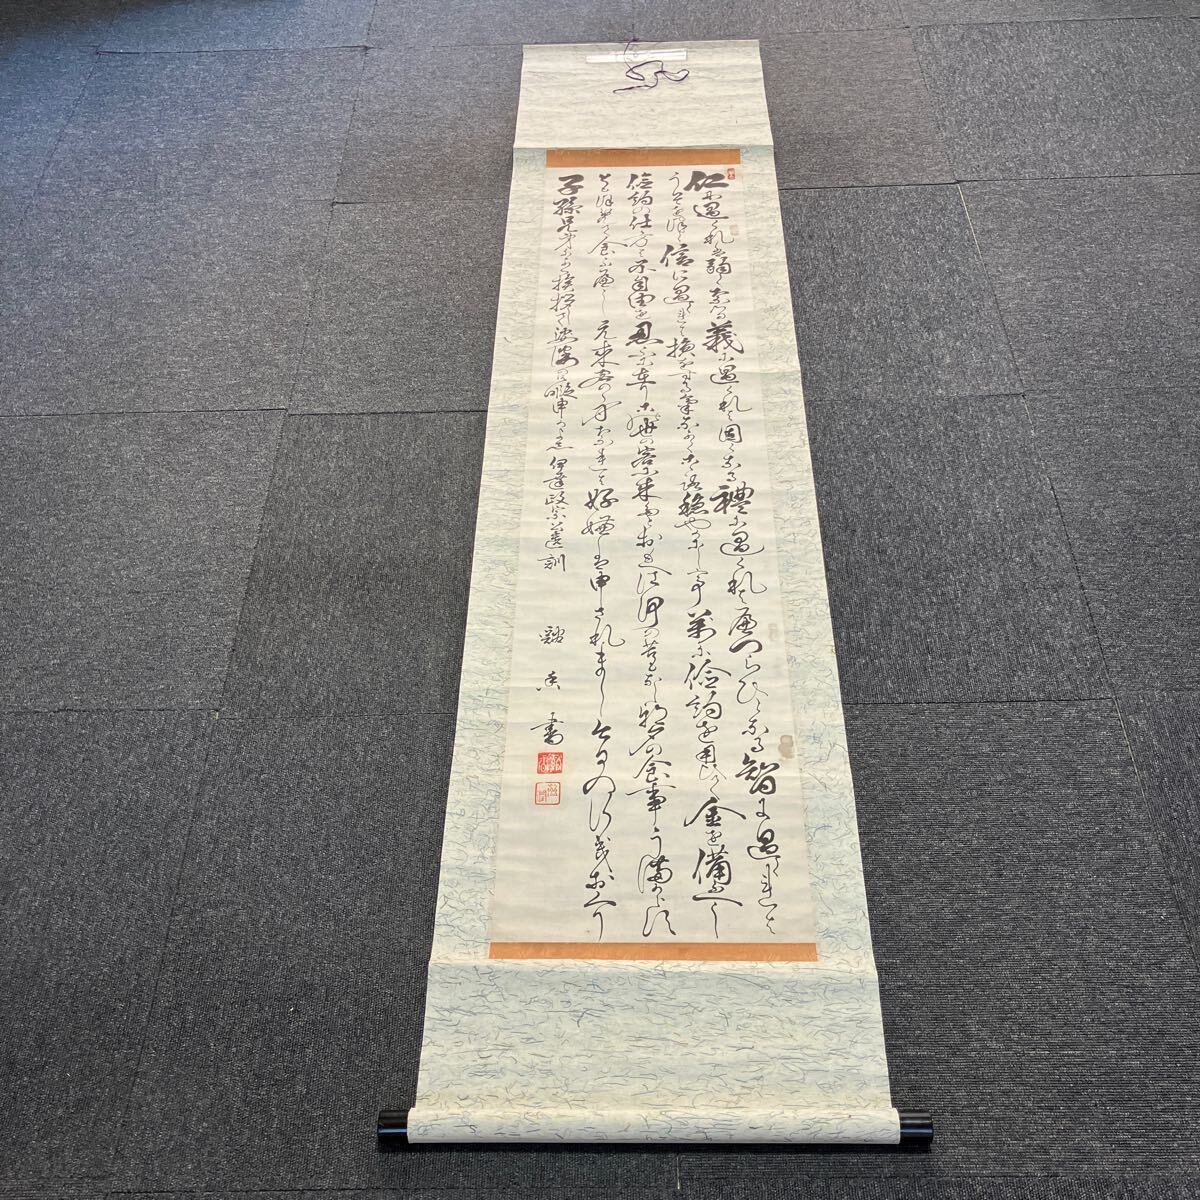 仁に過くれは弱くなる義に過くれは固くなる禮に過くれはへつらひとなる智に過れは
うそをつく信に過れは損をする氣なかくこころ穏やかにして萬に儉約を用ひて金を備ふへし
儉約の仕方は不自由を忍ふに有りこの世の客に来たとおもへは何の苦もなし朝夕の食事うまからす
ともほめて食ふへし元来客の身なれは好嫌は申されまし今日の行をおくり
子孫兄弟によく挨拶して娑婆の御暇申すかよし 伊達政宗公遺訓
書